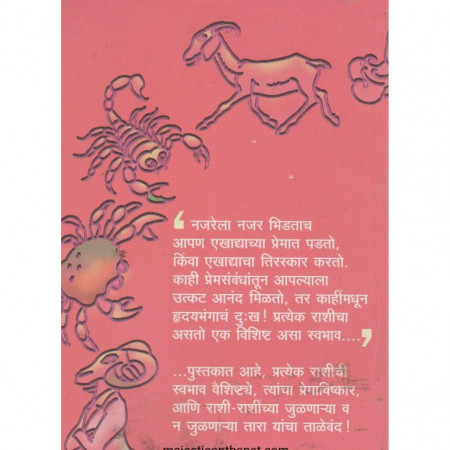 ‘ नजरेला नजर भिडताच
आपण एखाद्याच्या प्रेमात पडतो,
किंवा एखाद्याचा तिरस्कार करतो.
काही प्रेमसंबंधांतून आपल्याला
उत्कट आनंद मिळतो, तर काहींमधून
हृदयभंगाचं दुःख! प्रत्येक राशीचा
असतो एक विशिष्ट असा स्वभाव....’
...पुस्तकात आहे, प्रत्येक राशीची
स्वभाव वैशिष्ट्ये, त्यांचा प्रेमाविष्कार,
आणि राशी-राशींच्या जुळणाऱ्या व
न जुळणाऱ्या तारा यांचा ताळेबंद!
majesticonthenet.com